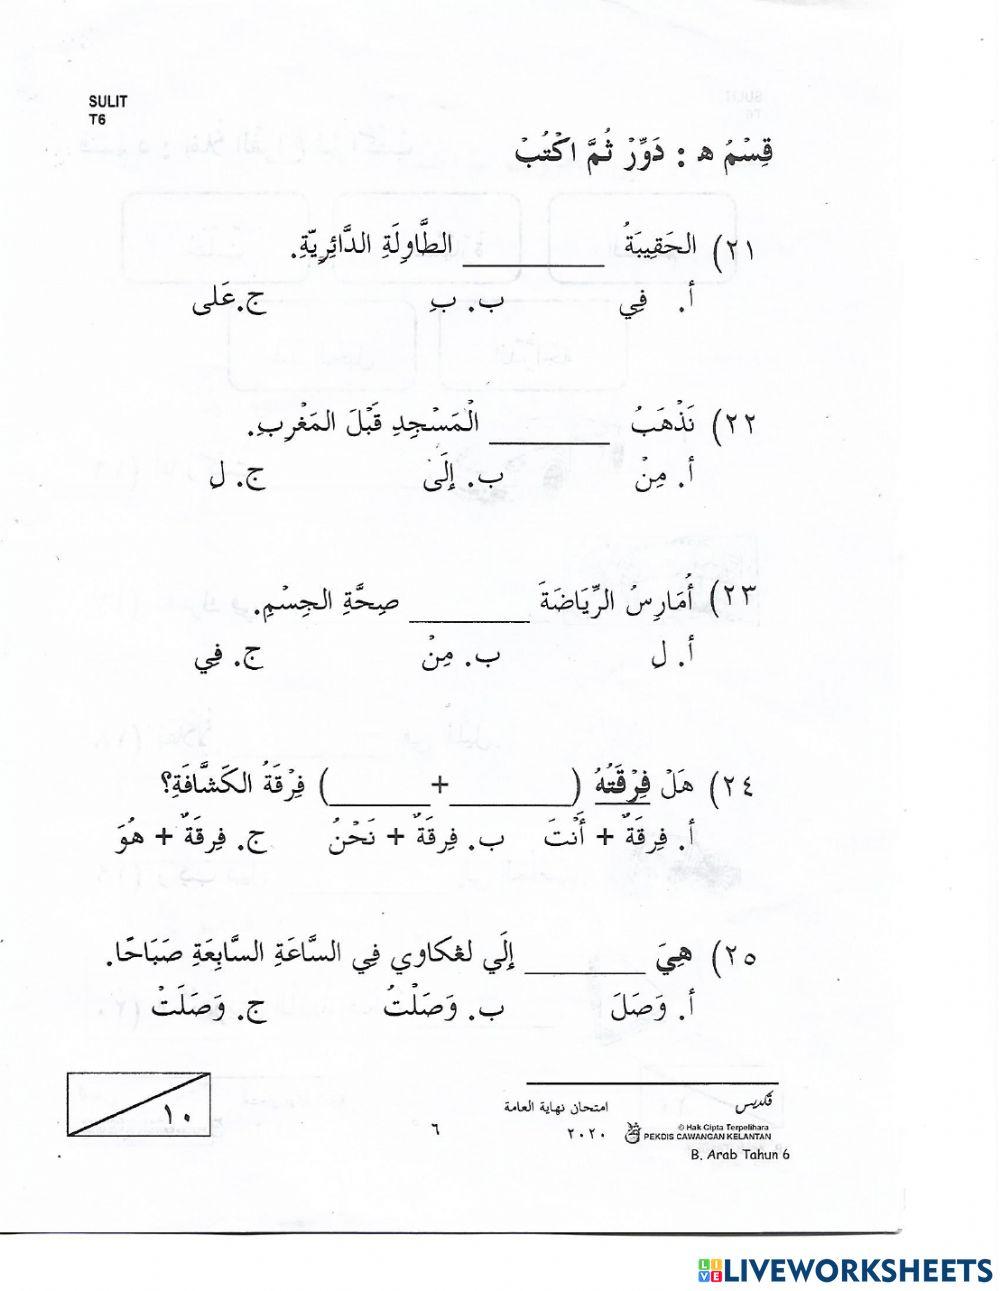 SULIT
T6
قِسْمُ ه : دَوِّرْ ثُمَّ اكْتُبْ
٢١) الحَقِيبَةُ __________ الطَّاوِلَةِ الدَّائِرِيّةِ.
أ. فِي ب. بِ ج. عَلى
٢٢) نَذْهَبُ __________ الْمَسْجِدِ قَبْلَ المَغْرِبِ.
أ. مِنْ ب. إِلَى ج. لِ
٢٣) أُمَارِسُ الرِّيَاضَةَ __________ صِحَّةِ الجِسْمِ.
أ. لِ ب. مِنْ ج. فِي
٢٤) هَلْ فِرْقَتُهُ (__________+__________) فِرْقَةُ الكَشَّافَةِ؟
أ. فِرقَةٌ + أَنْتَ ب. فِرقَةٌ + نَحْنُ ج. فِرقَةٌ + هُوَ
٢٥) هِيَ __________ إِلَي لڠكاوي فِي السَّاعَةِ السَّابِعَةِ صَبَاحًا.
أ. وَصَلَ ب. وَصَلْتُ ج. وَصَلَتْ
١٠
٦
امتحان نهاية العامة
٢٠٢٠
ڤكديس
© Hak Cipta Terpelihara
PEKDIS CAWANGAN KELANTAN
B. Arab Tahun 6
LIVEWORKSHEETS